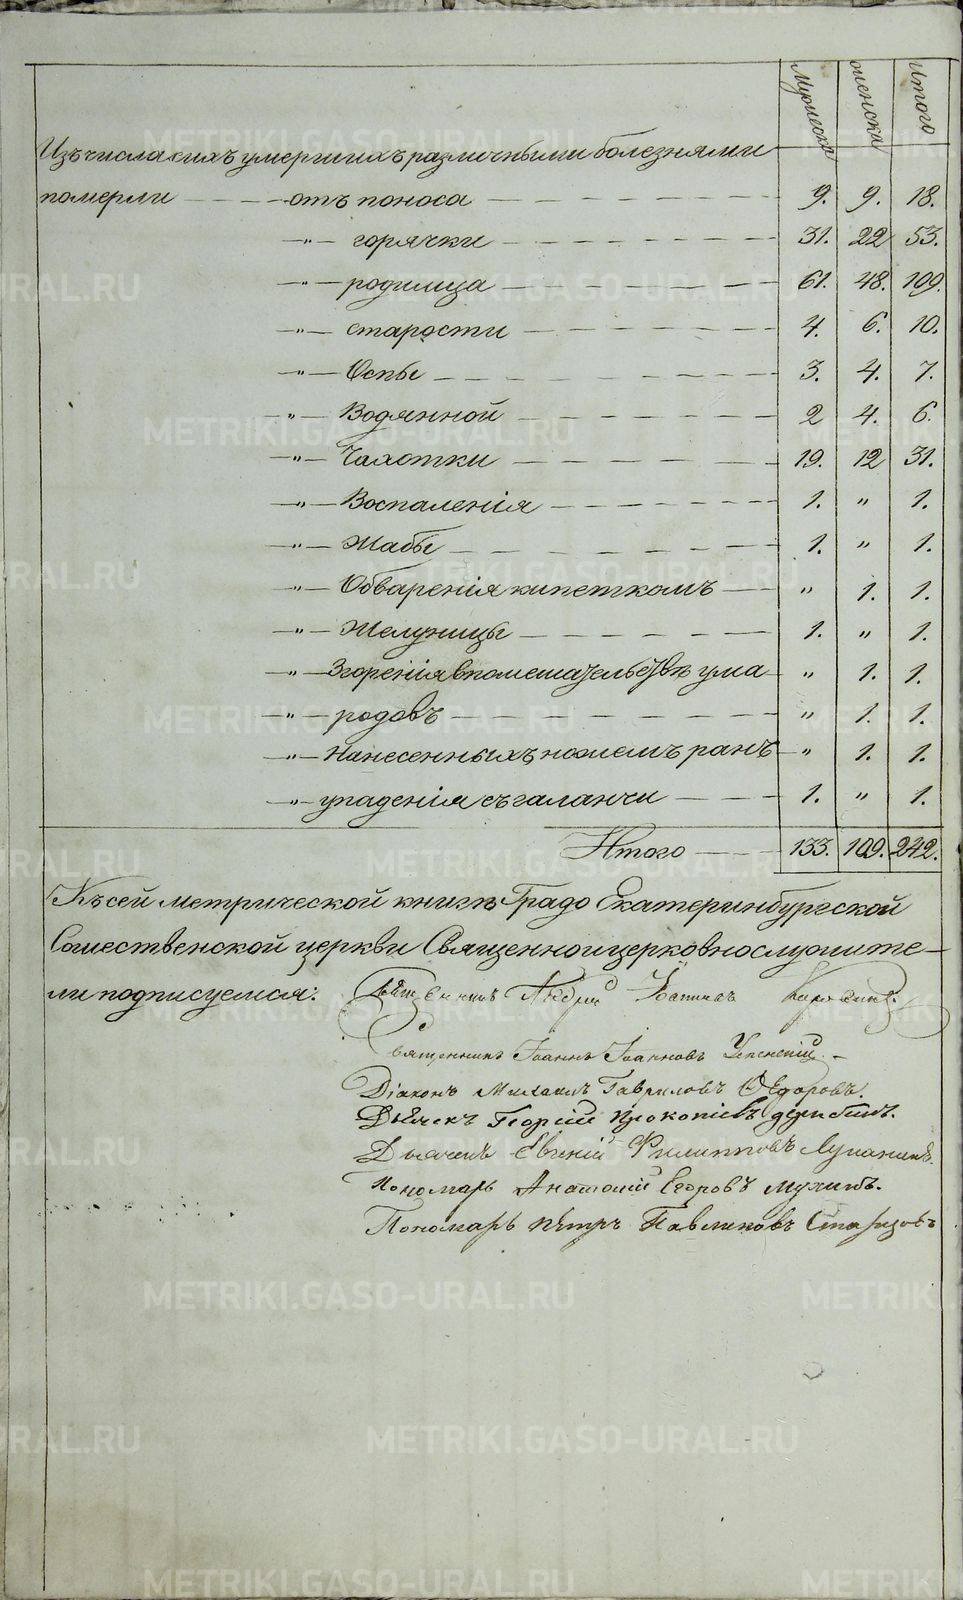 Мужеска женска Итого
Изъ числа сихъ умершихъ различными болезнями
померли — отъ поноса — 9. 9. 18.
„ — горячки — 31. 22 53.
„ — родимца — 61. 48. 109.
„ — старости — 4. 6. 10.
„ — Оспы — 3. 4. 7.
„ — Водянной — 2 4. 6.
„ — Чахотки — 19. 12 31.
„ — Воспаленія — 1. „ 1.
„ — Жабы — 1. „ 1.
„ — Обваренія кипеткомъ — „ 1. 1.
„ — Желуницы — 1. „ 1.
„ — Згоренія впомешательствѣ ума „ 1. 1.
„ — родовъ — „ 1. 1.
„ — Нанесенныхъ ножемъ ранъ — „ 1. 1.
„ — упаденія съ галанчи — 1. „ 1.
Итого — 133. 109. 242.
Къ сей метрической книгѣ Градо Екатеринбургской
Сошественской церкви Священноицерковнослужите-
ли подписуемся: Священникъ Андрей Іоанновъ
Священникъ Іоаннъ Іоанновъ Успенскій.
Діаконъ Михаилъ Гавриловъ Ѳедоровъ.
Дьячекъ Георгій Прокопіевъ
Дьячекъ Евгеній Филипповъ Лукانинъ.
Пономарь Анатолій Егоровъ Мухинъ.
Пономарь Петръ Павлиновъ
METRIKI.GASO-URAL.RU